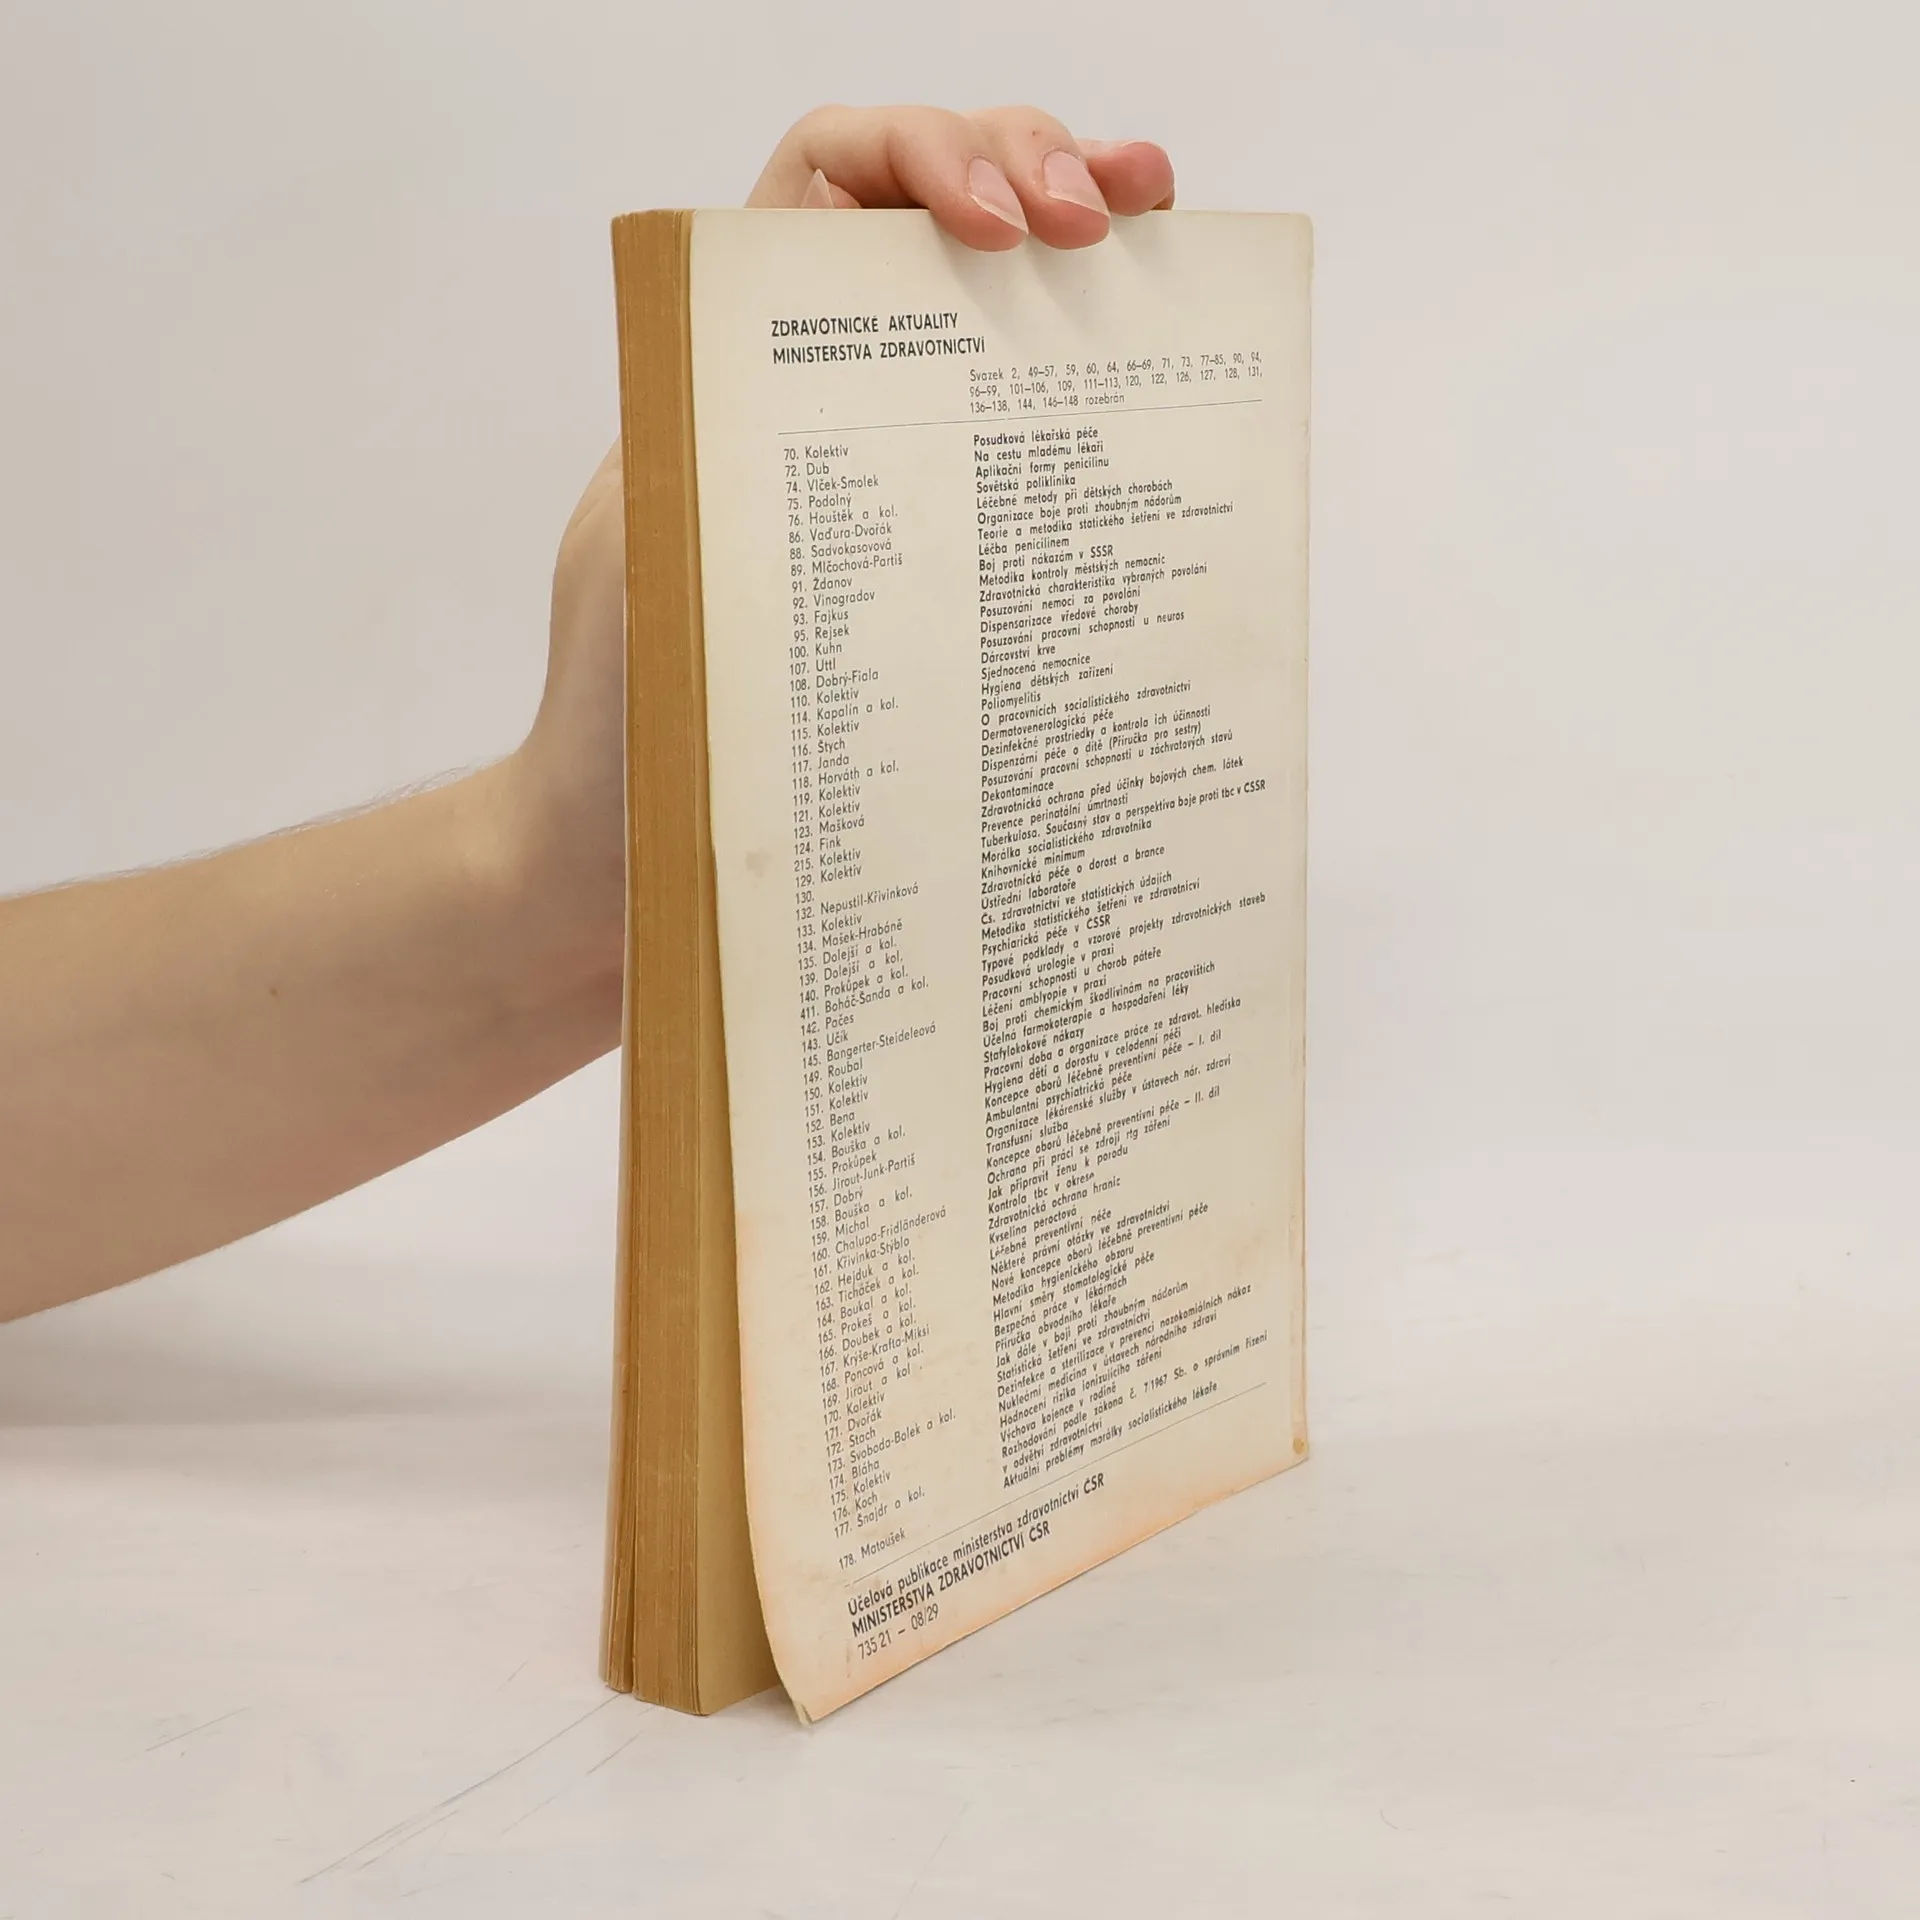 ZDRAVOTNICKÉ AKTUALITY
MINISTERSTVA ZDRAVOTNICTVÍ
Svazek 2, 49–57, 59, 60, 64, 66–69, 71, 73, 77–85, 90, 94,
96–99, 101–106, 109, 111–113, 120, 122, 126, 127, 128, 131,
136–138, 144, 146–148 rozebrán
70. Kolektiv
72. Dub
74. Vlček-Smolek
75. Podolný
76. Houštěk a kol.
86. Vaďura-Dvořák
88. Sadvokasovová
89. Mlčochová-Partiš
91. Ždanov
92. Vinogradov
93. Fajkus
95. Rejsek
100. Kuhn
107. Uttl
108. Dobrý-Fiala
110. Kolektiv
114. Kapalín a kol.
115. Kolektiv
116. Štych
117. Janda
118. Horváth a kol.
119. Kolektiv
121. Kolektiv
123. Mašková
124. Fink
215. Kolektiv
129. Kolektiv
130.
132. Nepustil-Křivinková
133. Kolektiv
134. Mašek-Hrabáně
135. Dolejší a kol.
139. Dolejší a kol.
140. Prokůpek a kol.
411. Boháč-Šanda a kol.
142. Pačes
143. Učík
145. Bangerter-Steideleová
149. Roubal
150. Kolektiv
151. Kolektiv
152. Bena
153. Kolektiv
154. Bouška a kol.
155. Prokůpek
156. Jirout-Junk-Partiš
157. Dobrý
158. Bouška a kol.
159. Michal
160. Chalupa-Fridländerová
161. Křivinka-Stýblo
162. Hejduk a kol.
163. Ticháček a kol.
164. Boukal a kol.
165. Prokeš a kol.
166. Doubek a kol.
167. Krýše-Krafta-Miksi
168. Poncová a kol.
169. Jirout a kol.
170. Kolektiv
171. Dvořák
172. Stach
173. Svoboda-Bolek a kol.
174. Bláha
175. Kolektiv
176. Koch
177. Šnajdr a kol.
178. Matoušek
Posudková lékařská péče
Na cestu mladému lékaři
Aplikační formy penicilínu
Sovětská poliklinika
Léčebné metody při dětských chorobách
Organizace boje proti zhoubným nádorům
Teorie a metodika statického šetření ve zdravotnictví
Léčba penicilínem
Boj proti nákazám v SSSR
Metodika kontroly městských nemocnic
Zdravotnická charakteristika vybraných povolání
Posuzování nemocí za povolání
Dispensarizace vředové choroby
Posuzování pracovní schopnosti u neuros
Dárcovství krve
Sjednocená nemocnice
Hygiena dětských zařízení
Poliomyelitis
O pracovnících socialistického zdravotnictví
Dermatovenerologická péče
Dezinfekčné prostriedky a kontrola ich účinnosti
Dispenzární péče o dítě (Příručka pro sestry)
Posuzování pracovní schopnosti u záchvatových stavů
Dekontaminace
Zdravotnická ochrana před účinky bojových chem. látek
Prevence perinatální úmrtnosti
Tuberkulosa. Současný stav a perspektiva boje proti tbc v ČSSR
Morálka socialistického zdravotníka
Knihovnické minimum
Zdravotnická péče o dorost a brance
Ústřední laboratoře
Čs. zdravotnictví ve statistických údajích
Metodika statistického šetření ve zdravotnictví
Psychiarická péče v ČSSR
Typové podklady a vzorové projekty zdravotnických staveb
Posudková urologie v praxi
Pracovní schopnosti u chorob páteře
Léčení amblyopie v praxi
Boj proti chemickým škodlivinám na pracovištích
Účelná farmokoterapie a hospodaření léky
Stafylokokové nákazy
Pracovní doba a organizace práce ze zdravot. hlediska
Hygiena dětí a dorostu v celodenní péči
Koncepce oborů léčebně preventivní péče – I. díl
Ambulantní psychiatrická péče
Organizace lékárenské služby v ústavech nár. zdraví
Transfusní služba
Koncepce oborů léčebně preventivní péče – II. díl
Ochrana při práci se zdroji rtg záření
Jak připravit ženu k porodu
Kontrola tbc v okrese
Zdravotnická ochrana hranic
Kyselina peroctová
Léčebně preventivní péče
Některé právní otázky ve zdravotnictví
Nové koncepce oborů léčebně preventivní péče
Metodika hygienického obzoru
Hlavní směry stomatologické péče
Bezpečná práce v lékárnách
Příručka obvodního lékaře
Jak dále v boji proti zhoubným nádorům
Statistická šetření ve zdravotnictví
Dezinfekce a sterilizace v prevenci nozokomiálních nákaz
Nukleární medicína v ústavech národního zdraví
Hodnocení rizika ionizujícího záření
Výchova kojence v rodině
Rozhodování podle zákona č. 71967 Sb. o správním řízení
v odvětví zdravotnictví
Aktuální problémy morálky socialistického lékaře
Účelová publikace ministerstva zdravotnictví ČSR
MINISTERSTVA ZDRAVOTNICTVÍ ČSR
735 21 – 08/29